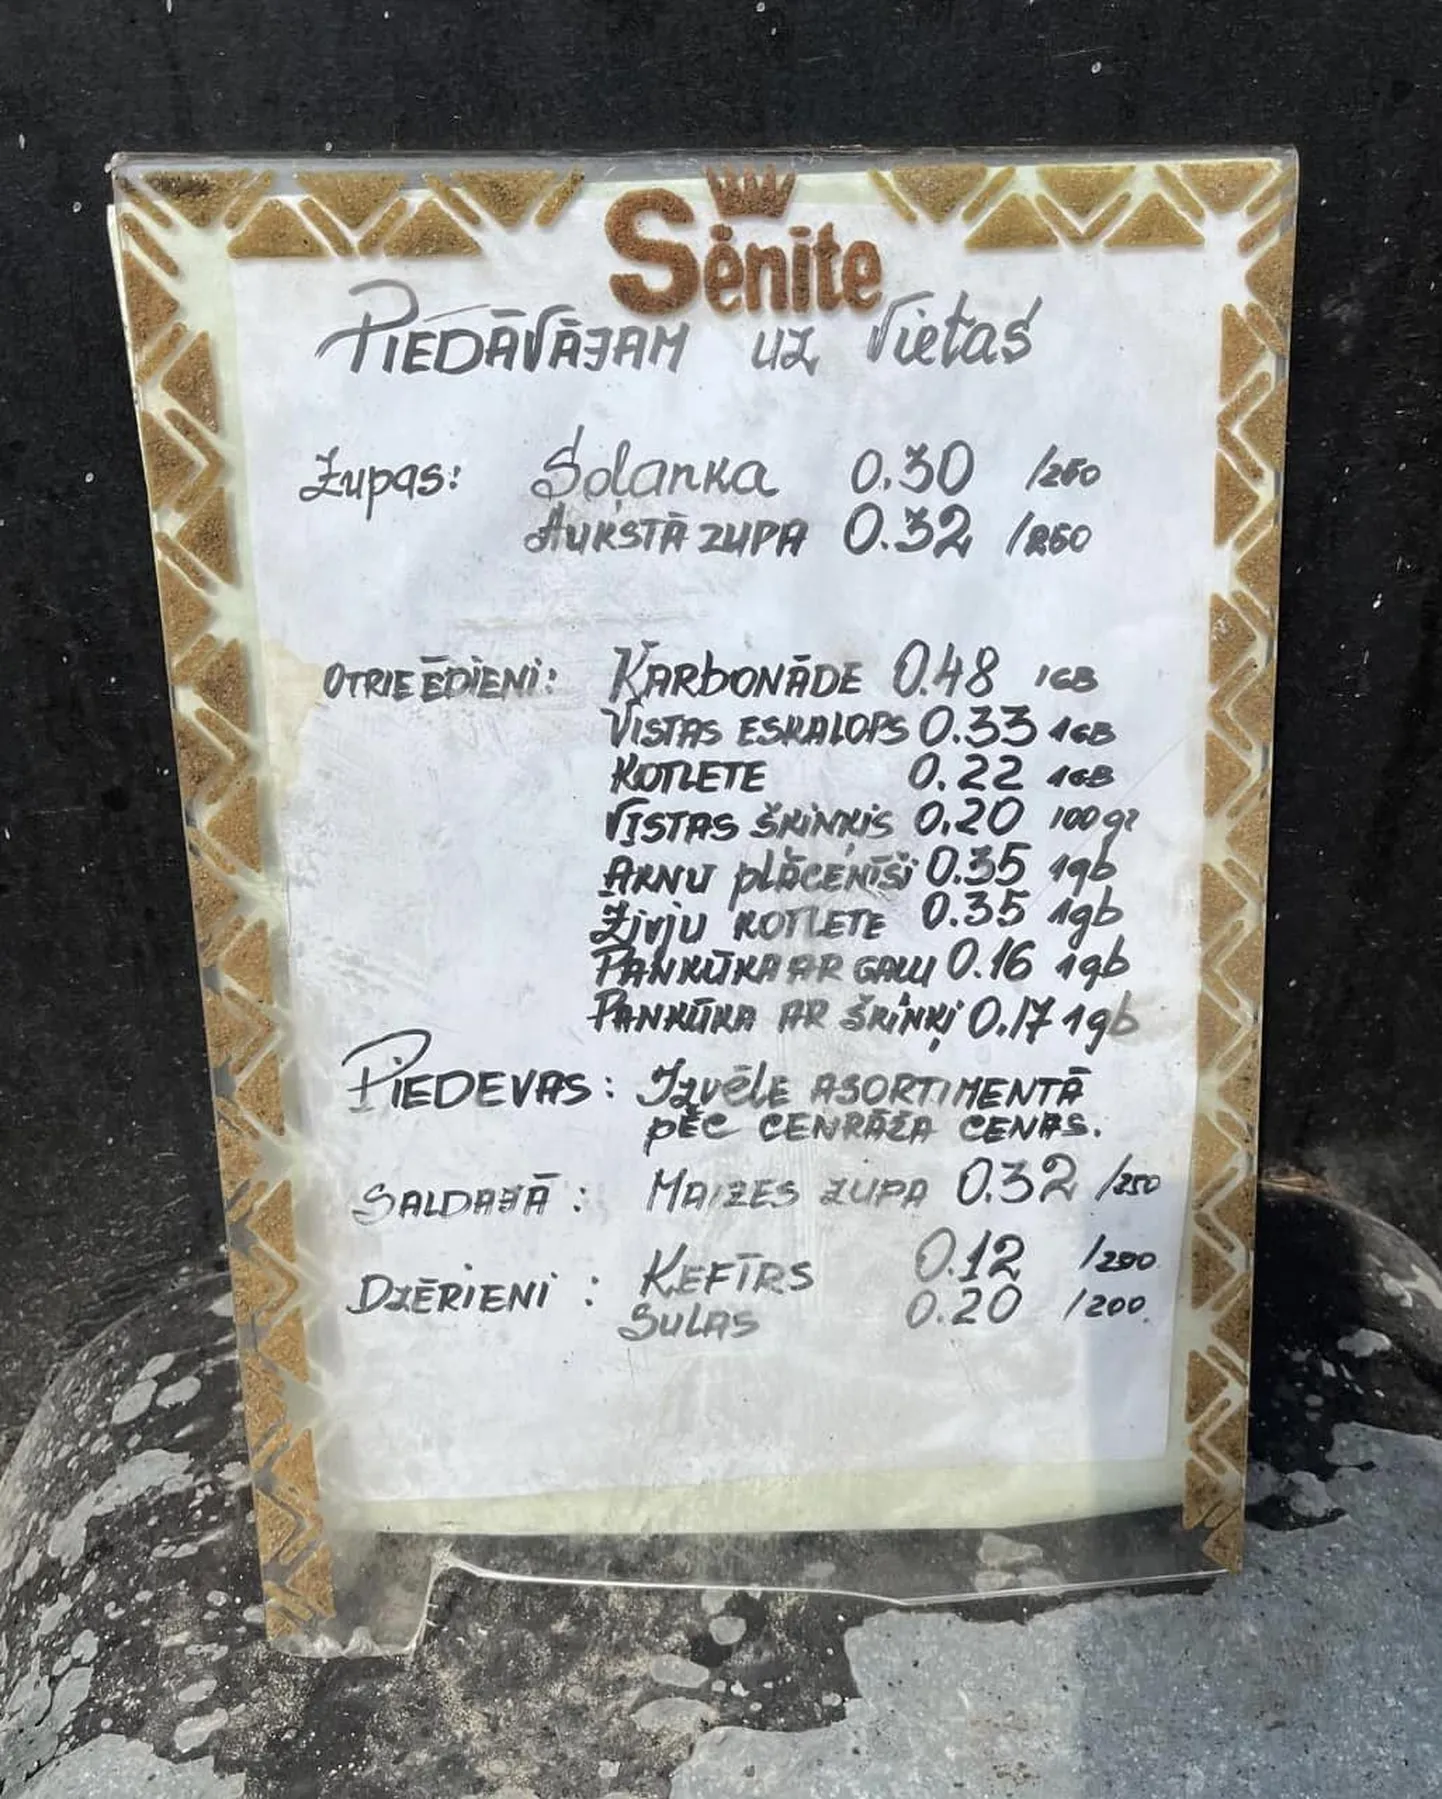 Sēnīte
PIEDĀVĀJAM uz Vietas
Zupas: Soļanka 0.30 /250
AUKSTĀ ZUPA 0.32 /250
OTRIE ĒDIENI: KARbONĀDE 0.48 1GB
VISTAS ESKALOPS 0.33 1GB
KOTLETE 0.22 1GB
VISTAS ŠĶIŅĶIS 0.20 100gr
AKNU plāceņīši 0.35 1gb
Zivju KOTLETE 0.35 1gb
PANKŪKA AR GAĻU 0.16 1gb
PANKŪKA AR ŠĶIŅĶI 0.17 1gb
PIEDEVAS: Izvēle ASORTIMENTĀ
pēc CENRĀŽA CENAS.
SALDAJĀ: MAIZES ZUPA 0.32 /250
DZĒRIENI: KEFĪRS 0.12 /200
SULAS 0.20 /200.